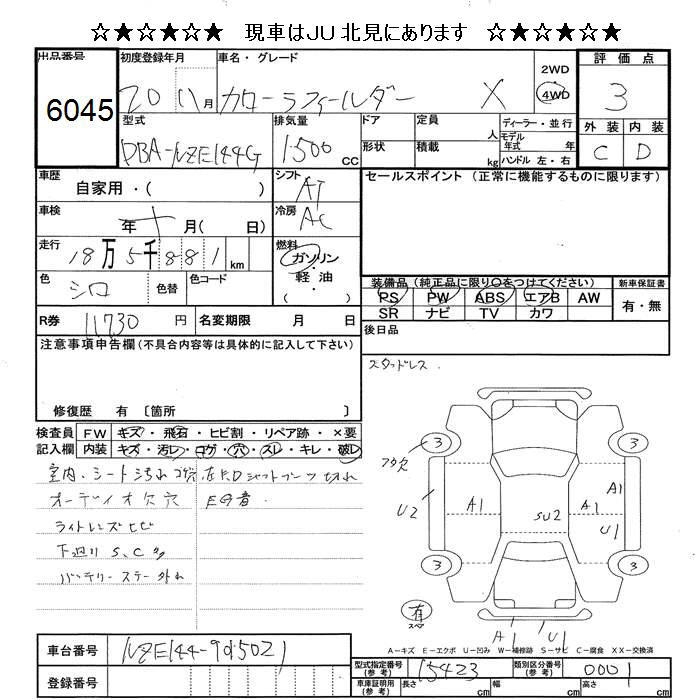 ☆★☆★☆★☆ 現車はJU北見にあります ☆★☆★☆★☆
出品番号 初度登録年月 車名・グレード 評価点
6045 20 11月 カローラフィールダー X 2WD 4WD 3
型式 排気量 ドア 定員 人 ディーラー・並行 外装 内装
DBA-NZE144G 1500 CC 形状 積載 kg モデル年式 年 ハンドル 左・右 C D
車歴 自家用・( ) シフト AT セールスポイント (正常に機能するものに限ります)
車検 年 月( 日) 冷房 AC
走行 18万5千881 km 燃料 ガソリン・軽油・( )
色 シロ 色替 色コード
装備品(純正品に限り○をつけてください) 新車保証書
PS PW ABS エアB AW 有・無
SR ナビ TV カワ
R券 11730 円 名変期限 月 日 後日品
注意事項申告欄(不具合内容等は具体的に記入して下さい) スタッドレス.
修復歴 有 〔箇所 〕
検査員 FW キズ・飛石・ヒビ割・リペア跡・×要
記入欄 内装 キズ・汚レ・コゲ・穴・スレ・キレ・破レ
室内・シート汚れ
オーディオ欠 穴
ライトレンズヒビ
下廻り S、C
バッテリーステー外れ
切れ
3 3
フタ欠
U2 A1 SU2 A1 A1
U1
3 3
有
スペア
A1 U1
A-キズ E-エクボ U-凹み W-補修跡 S-サビ C-腐食 XX-交換済
車台番号 NZE144-9015021
型式指定番号(参考) 15423 類別区分番号(参考) 0001
登録番号 車庫証明用(参考) 長さ cm 幅 cm 高さ cm